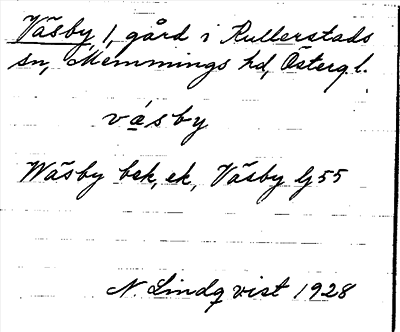 Väsby, 1, gård i Kullerstads
sn, Memmings hd, Östergl.
vásby
Wäsby bek, ek, Väsby Gj 55
N. Lindqvist 1928